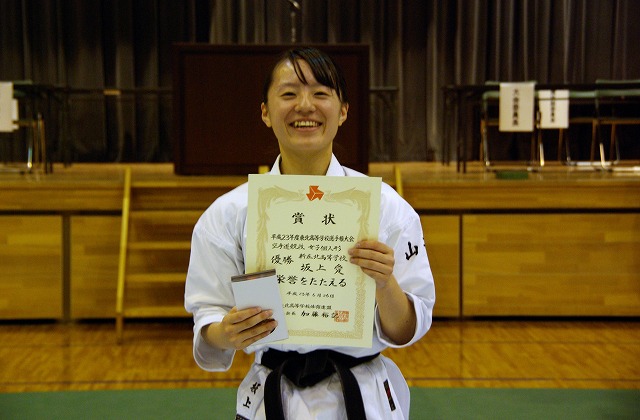 賞状
平成23年度東北高等学校選手権大会
空手道競技 女子個人形
優勝 新庄北高等学校
坂上 愛
栄誉をたたえる
平成23年6月26日
北高等学校体育連盟
会長 加藤裕
山
坂上